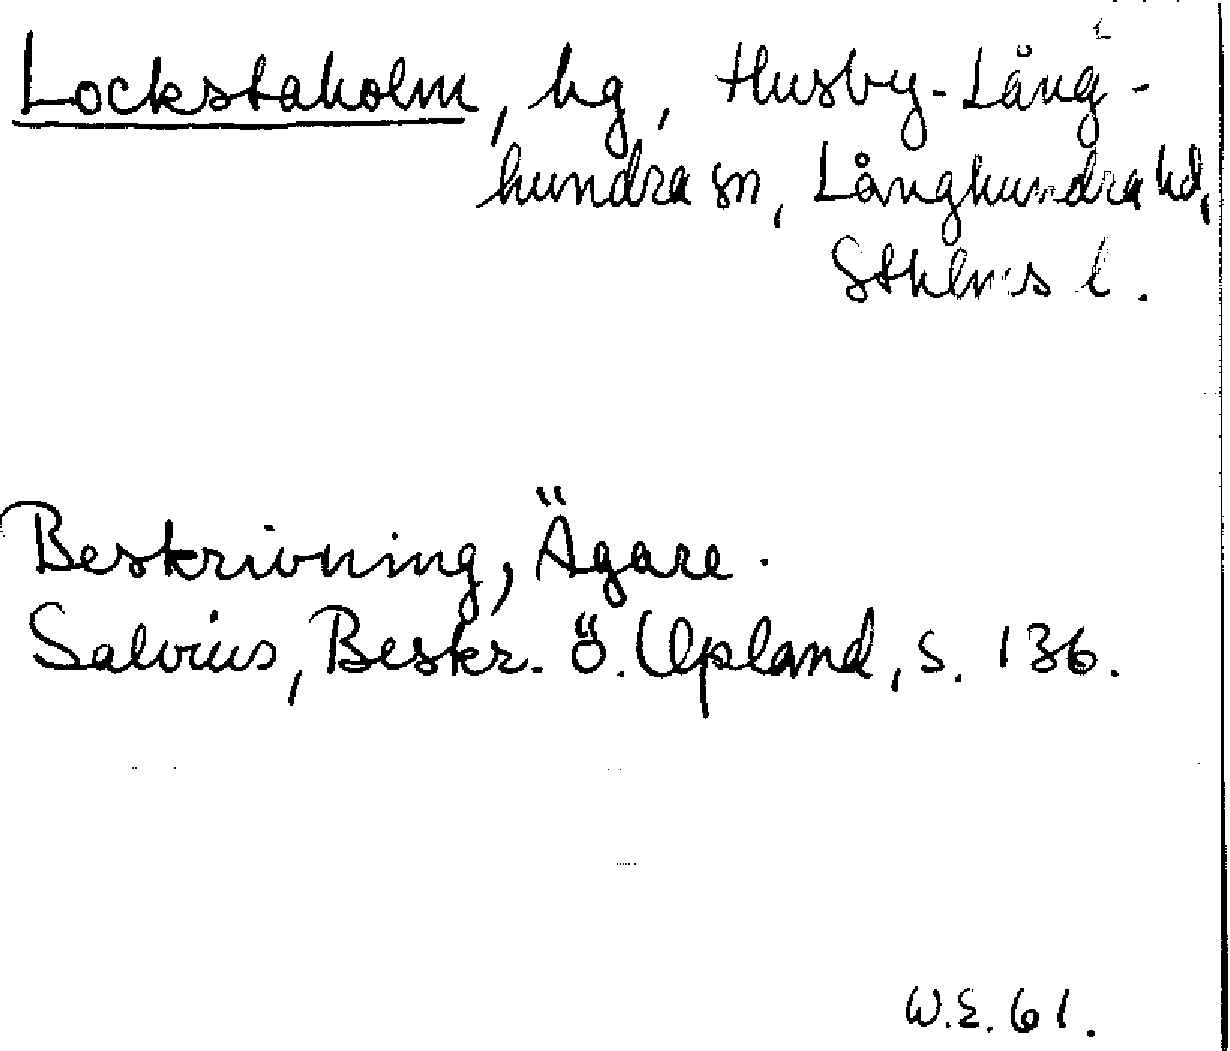 Lockstaholm, hg, Husby-Lång-
hundra sn, Långhundra hd,
Sthlms l.
Beskrivning, Ägare.
Salvius, Beskr. Ö. Upland, s. 136.
W.E. 61.